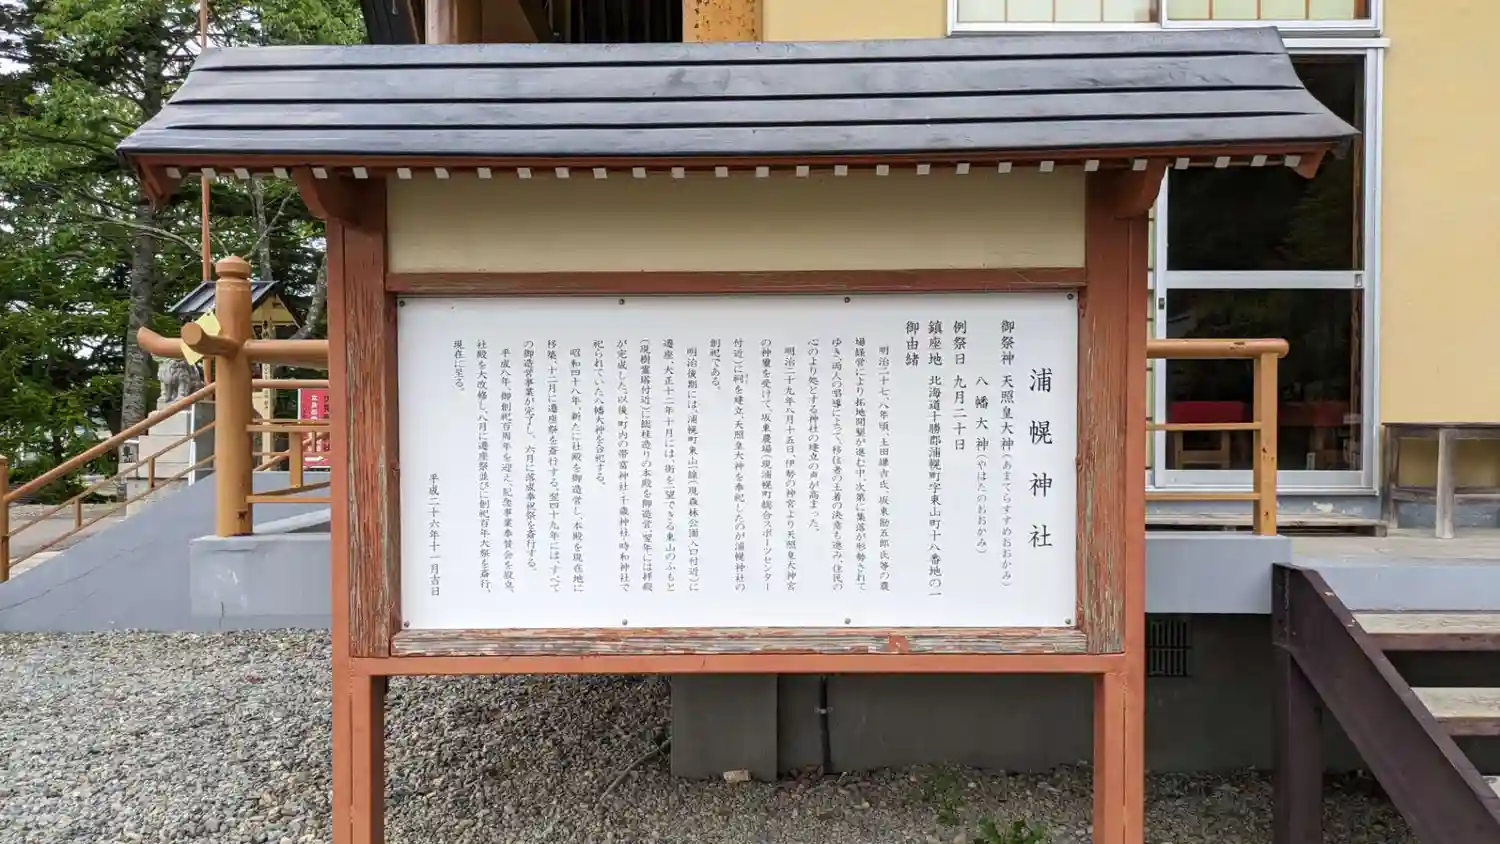 浦幌神社
御祭神 天照皇大神(あまてらすすめおおかみ)
八幡大神(やはたのおおかみ)
例祭日 九月二十日
鎮座地 北海道十勝郡浦幌町字東山町十八番地の一
御由緒
明治二十七、八年頃、土田謙吉氏、坂東勘五郎氏等の農
場経営により拓地開墾が進む中、次第に集落が形勢されて
ゆき、両人の唱導によって、移住者の土着の決意も進み、住民の
心のより処とする神社の建立の声が高まった。
明治二十九年八月十五日、伊勢の神宮より天照皇大神宮
の神璽を受けて、坂東農場(現浦幌町総合スポーツセンター
付近)に祠を建立、天照皇大神を奉祀したのが浦幌神社の
創祀である。
明治後期には、浦幌町東山一線(現森林公園入口付近)に
遷座、大正十二年十月には、街を一望できる東山のふもと
(現樹霊塔付近)に総柱造りの本殿を御造営(翌年には拝殿
が完成した)以後、町内の帯富神社・千歳神社・時和神社で
祀られていた八幡大神を合祀する。
昭和四十八年、新たに社殿を御造営し、本殿を現在地に
移築、十二月に遷座祭を斎行する。翌四十九年には、すべて
の御造営事業が完了し、六月に落成奉祝祭を斎行する。
平成八年、御創祀百周年を迎え、記念事業奉賛会を設立、
社殿を大改修し、八月に遷座祭並びに創祀百年大祭を斎行、
現在に至る。
平成二十六年十一月吉日